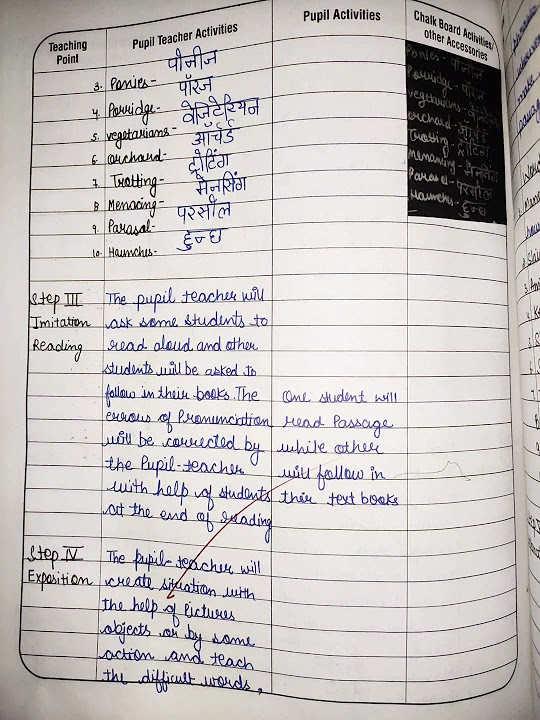 Teaching Point
Pupil Teacher Activities
Pupil Activities
Chalk Board Activities/ other Accessories
3. Ponies- पोनीज
4. Porridge- पॉरज
5. vegetarians- वेजिटेरियन
6. orchard- ऑर्चर्ड
7. Trotting- ट्रोटिंग
8 Menacing- मेनसिंग
9. Parasol- परसौल
10. Haunches- हुन्छ
Ponies- पोनीज
Porridge- पॉरज
vegetarians-
orchard- ऑर्चर्ड
Trotting- ट्रोटिंग
Menancing- मेनसिंग
Parasol- परसौल
Haunches- हुन्छ
Step III
Imitation
Reading
The pupil teacher will
ask some students to
read aloud and other
students will be asked to
follow in their books. The
errors of Pronunciation
will be corrected by
the Pupil-teacher
with help of students
at the end of reading
One student will
read Passage
while other
will follow in
their text books
Step IV
Exposition
The pupil-teacher will
create situation with
the help of Pictures
objects or by some
action and teach
the difficult words,